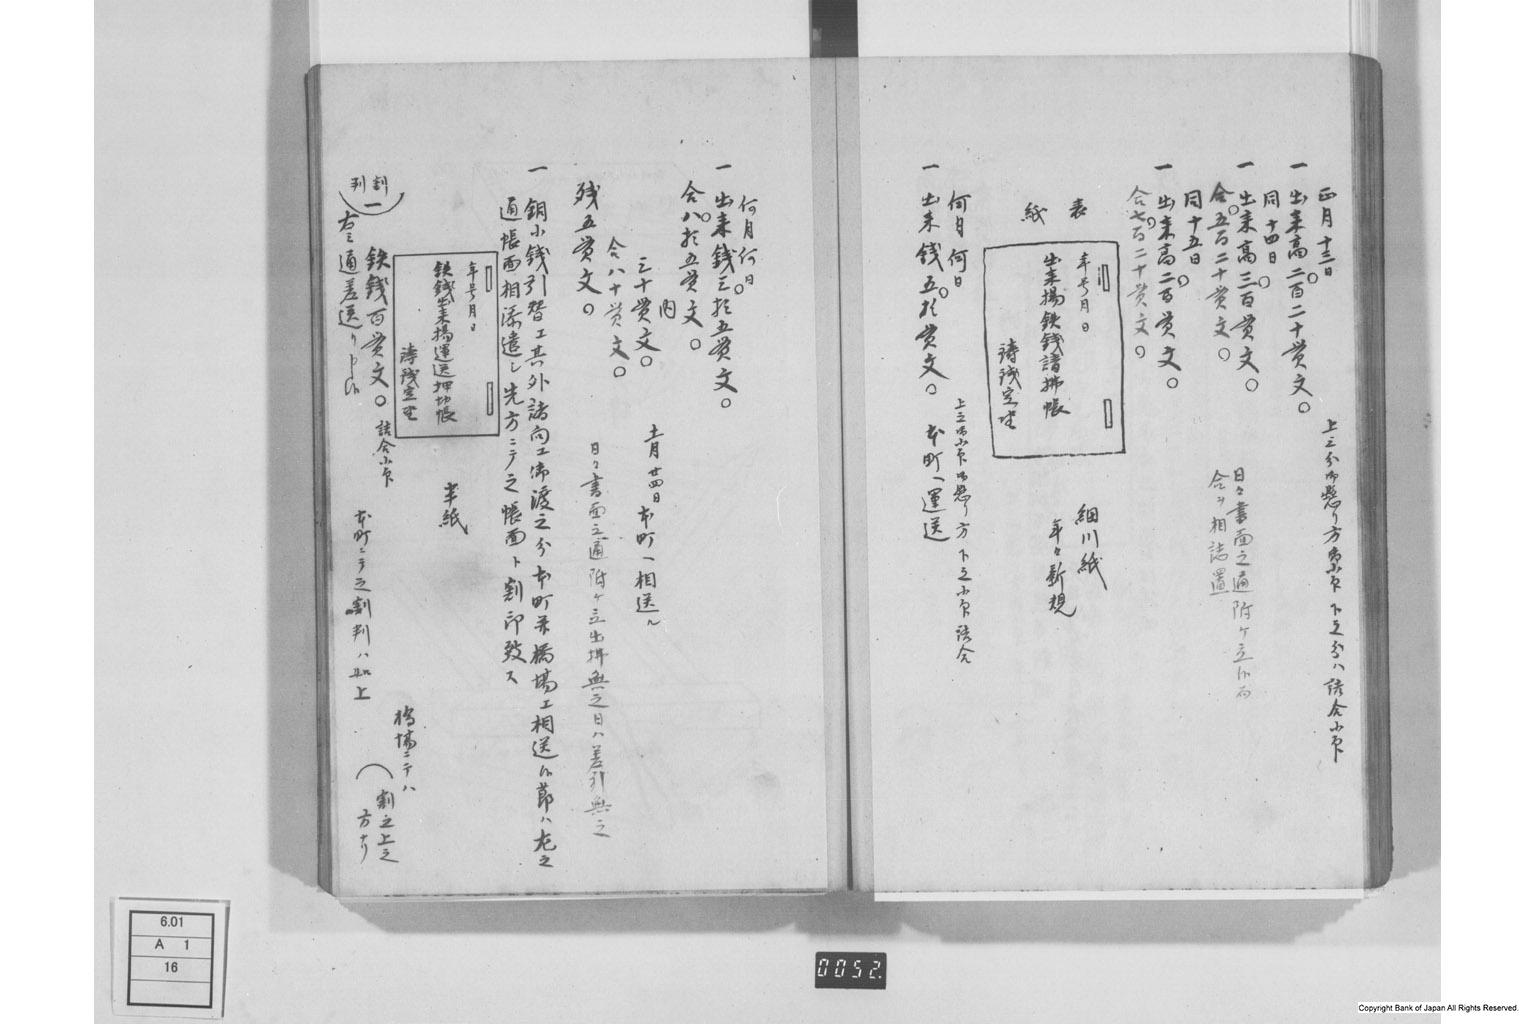 正月十三日
一 出来高二百二十貫文○
同十四日○
一 出来高三百貫文○
合五百二十貫文○
同十五日○
一 出来高二百貫文○
合七百二十貫文○
日々書面之通附ケ立
合ヲ相認置
表紙
年号月日
出来揚鉄銭請払帳
鋳銭定座
細川紙
年々新規
何月何日
一 出来銭五拾貫文○
本町ヘ運送
何月何日○
一 出来銭三拾五貫文○
合八拾五貫文○
内
三十貫文○
十一月廿四日本町ヘ相送ル
合八十貫文○
残五貫文○
日々書面之通附ケ立出拂無之日ハ差引無之
一 銅小銭引替エ其外諸向エ御渡之分本町并橋場エ相送候節ハ左之
通帳面相添遣し先方ニテ之帳面ト割印致ス
年号月日
鉄銭出来揚運送押切帳
鋳銭定座
半紙
割判
一 鉄銭百貫文○
右之通差送り申候
本町ニテ之割判ハ如上
橋場ニテハ
割之上之
方ナリ
6.01
A 1
16
0052
Copyright Bank of Japan All Rights Reserved.